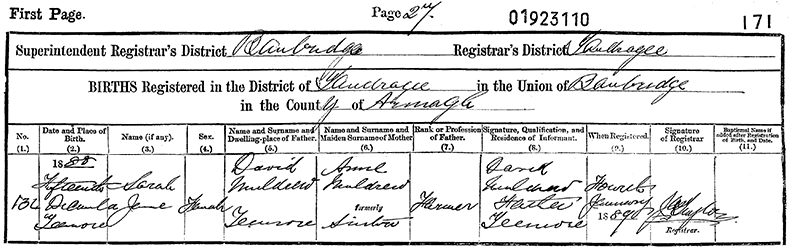 First Page. Page 27. 01923110 171
Superintendent Registrar's District Banbridge Registrar's District Tandragee
BIRTHS Registered in the District of Tandragee in the Union of Banbridge
in the County of Armagh
No. Date and Place of Birth. Name (if any). Sex. Name and Surname and Dwelling-place of Father. Name and Surname and Maiden Surname of Mother Rank or Profession of Father. Signature, Qualification, and Residence of Informant. When Registered. Signature of Registrar Baptismal Name if added after Registration of Birth, and Date.
(1.) (2.) (3.) (4.) (5.) (6.) (7.) (8.) (9.) (10.) (11.)
1888 David Anne David
Fifteenth Sarah Muldrew Muldrew Muldrew Fourth
December Jane Female formerly Farmer Father January
Teemore Teemore Sinton Teemore 1889
Registrar.